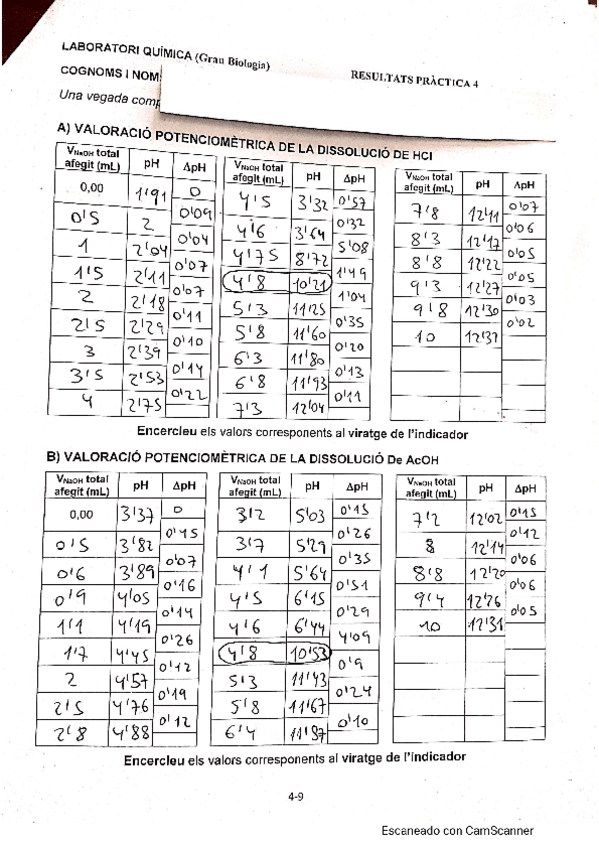 LABORATORI QUÍMICA (Grau Biologia)
RESULTATS PRÀCTICA 4
COGNOMS I NOM:
Una vegada comp
A) VALORACIÓ POTENCIOMÈTRICA DE LA DISSOLUCIÓ DE HCl
VNaOH total afegit (mL) pH ΔpH
0,00 1'91 0
0'5 2 0'09
1 2'04 0'04
1'5 2'11 0'07
2 2'18 0'07
2'5 2'29 0'11
3 2'39 0'10
3'5 2'53 0'14
4 2'75 0'22
VNaOH total afegit (mL) pH ΔpH
4'5 3'32 0'57
4'6 3'64 0'32
4'75 8'72 5'08
4'8 10'21 1'49
5'3 11'25 1'04
5'8 11'60 0'35
6'3 11'80 0'20
6'8 11'93 0'13
7'3 12'04 0'11
VNaOH total afegit (mL) pH ΔpH
7'8 12'11 0'07
8'3 12'17 0'06
8'8 12'22 0'05
9'3 12'27 0'05
9'8 12'30 0'03
10 12'32 0'02
Encercleu els valors corresponents al viratge de l'indicador
B) VALORACIÓ POTENCIOMÈTRICA DE LA DISSOLUCIÓ De AcOH
VNaOH total afegit (mL) pH ΔpH
0,00 3'37 0
0'5 3'82 0'45
0'6 3'89 0'07
0'9 4'05 0'16
1'1 4'19 0'14
1'7 4'45 0'26
2 4'57 0'12
2'5 4'76 0'19
2'8 4'88 0'12
VNaOH total afegit (mL) pH ΔpH
3'2 5'03 0'15
3'7 5'29 0'26
4'1 5'64 0'35
4'5 6'15 0'51
4'6 6'44 0'29
4'8 10'53 4'09
5'3 11'43 0'9
5'8 11'67 0'24
6'4 11'87 0'10
VNaOH total afegit (mL) pH ΔpH
7'2 12'02 0'15
8 12'14 0'12
8'8 12'20 0'06
9'4 12'26 0'06
10 12'31 0'05
Encercleu els valors corresponents al viratge de l'indicador
4-9
Escaneado con CamScanner